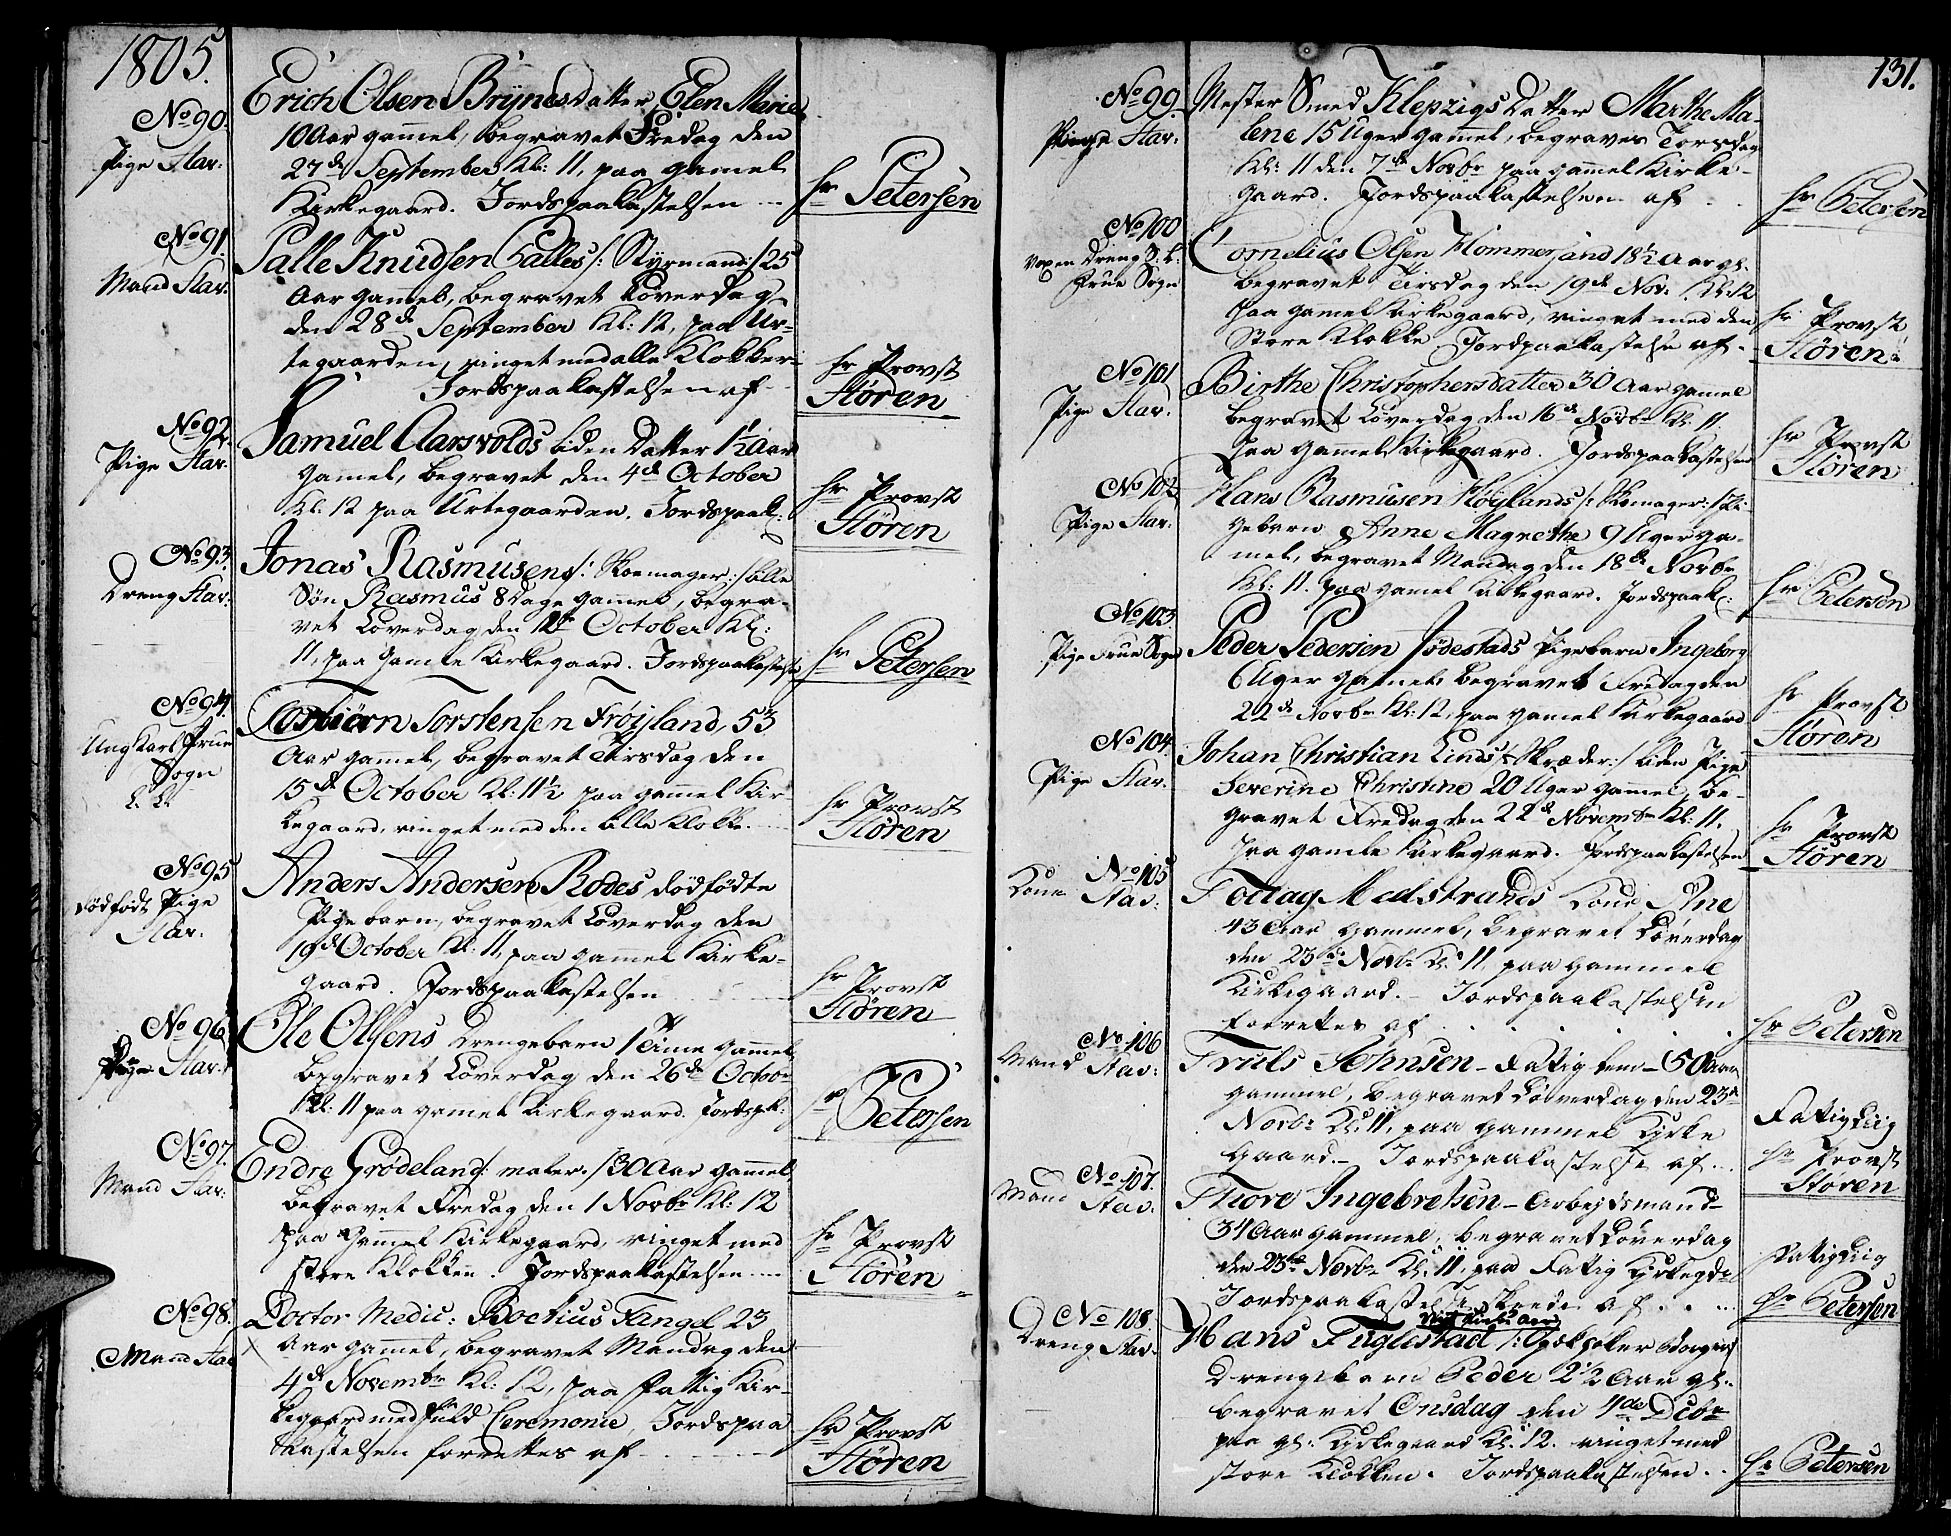 1805.
No 90.
Pige Stav:
Erich Olsen Brÿnes datter Elen Marie
10 Aar gammel, begravet Fredag den
27de September Kl: 11, paa gamel
Kirkegaard. Jordspaakastelsen
hr Petersen
No 91.
Mand Stav:
Palle Knudsen Calles /: Stÿrmand :/ 25
Aar gammel, begravet Löverdag
den 28de September Kl: 12, paa Ur-
tegaarden, ringet med alle Klokker
Jordspaakastelsen af
hr Provst
Stören
No 92.
Pige Stav:
Samuel Aarsvolds liden Datter 1½ Aar
gammel, begravet den 4de October
Kl: 12 paa Urtegaarden. Jordspaak:
hr Provst
Stören
No 93.
Dreng Stav:
Jonas Rasmusens /: Skoemager :/ lille
Sön Rasmus 8 Dage gammel, begra-
vet Löverdag den 12te October Kl:
11, paa Gamle Kirkegaard. Jordspaakastelse
hr Petersen
No 94.
Ung Karl Frue
Sogn
Torbiörn Torstensen Fröÿland, 53
Aar gammel, begravet Tirsdag den
15de October Kl: 11½ paa gammel Kir-
kegaard, ringet med den lille Klokke.
hr Provst
Stören
No 95
dödfödt Pige
Stav.
Anders Andersen Rodes dödfödte
Pigebarn, begravet Löverdag den
19de October Kl: 11, paa gammel Kirke-
gaard. Jordspaakastelsen
hr Provst
Stören
No 96
Stav:
Ole Olsens Drengebarn 1 Time gammel,
begravet Löverdag den 26de Octobr
Kl: 11 paa gamel Kirkegaard. Jordspk:
hr Petersen
No 97.
Mand Stav:
Endre Grödeland /: maler :/ 30 Aar gammel
begravet Fredag den 1 Novbr Kl: 12
paa Gammel Kirkegaard, ringet med
store Klokken. Jordspaakastelsen
hr Provst
Stören
No 98.
Mand Stav
Doctor Medic: Boetius Fangel 23
Aar gammel, begravet Mandag den
4de Novembr Kl: 12, paa Fattig Kir-
kegaard med fuld Ceremonie, Jordspaa
kastelsen forrettes af
hr Provst
Stören
131.
No 99.
Pige Stav:
Mester Smed Klepzigs Datter Marthe Ma-
lene 15 Uger gammel, begraves Torsdag
Kl: 11 den 7de Novbr paa gammel Kirke-
gaard. Jordspaakastelsen af
hr Petersen
No 100
Voxen Dreng S. k:
Frue Sogn
Cornelius Olsen Hommersand 18½ Aar gl.
begravet Tirsdag den 19de Nov. Kl: 12
paa gamel Kirkegaard, ringet med den
Store Klokke Jordpaakastelse af.
hr Provst
Stören
No 101
Pige Stav.
Birthe Christophersdatter 30 Aar gammel
begravet Löverdag den 16de Novbr Kl. 11
paa gammel Kirkegaard. Jordspaakastelsen
hr Provst
Stören
No 102
Pige Stav:
Hans Rasmusen Höÿlands /: Skomager :/ Pi-
gebarn Anne Magrethe 9 Uger ga-
mel, begravet Mandag den 18de Novbr
Kl: 11. paa gamel Kirkegaard. Jordspaak:
hr Petersen
No 103
Pige Frue Sogn
Peder Pedersen Jödestads Pigebarn Ingeborg
6 Uger gamel begravet Fredag den
22de Novbr Kl: 12, paa gamel Kirkegaard
hr Provst
Stören
No 104
Pige Stav.
Johan Christian Linds /: Skræder :/ liden Pige
Severine Christine 20 Uger gammel, be-
gravet Fredag den 22de Novembr Kl: 11.
paa gamle Kirkegaard. Jordspaakastelsen
hr Provst
Stören
No 105
Kone Stav:
Tollag Mælstrands Kone Ane
43 Aar gammel, begravet Löverdag
den 23de Novbr Kl: 11. paa gammel
Kirkegaard. Jordspaakastelsen
forrettes af
hr Petersen
No 106
Mand Stav:
Truls Johnsen - Fattiglem - 50 Aar
gammel, begravet Löverdag den 23de
Novbr Kl: 11, paa gammel Kirke
gaard. Jordspaakastelse af
Fattig Liig
hr Provst
Stören
No 107.
Mand Stav:
Thore Ingebretsen - Arbeÿdsmand -
34 Aar gammel, begravet Löverdag
den 23de Novbr Kl: 11, paa Fattig Kirkegd:
Jordspaakastelse skeede af
Fattig Liig
hr Petersen
No 108
Dreng Stav.
Nÿt Kirke Aar
Hans Fuglestad
Drengebarn Peder 2½ Aar gl.
begravet Onsdag den 4de Decbr
paa gl: Kirkegaard Kl: 12. ringet med
store Klokken. Jordspaakastelsen
hr Petersen